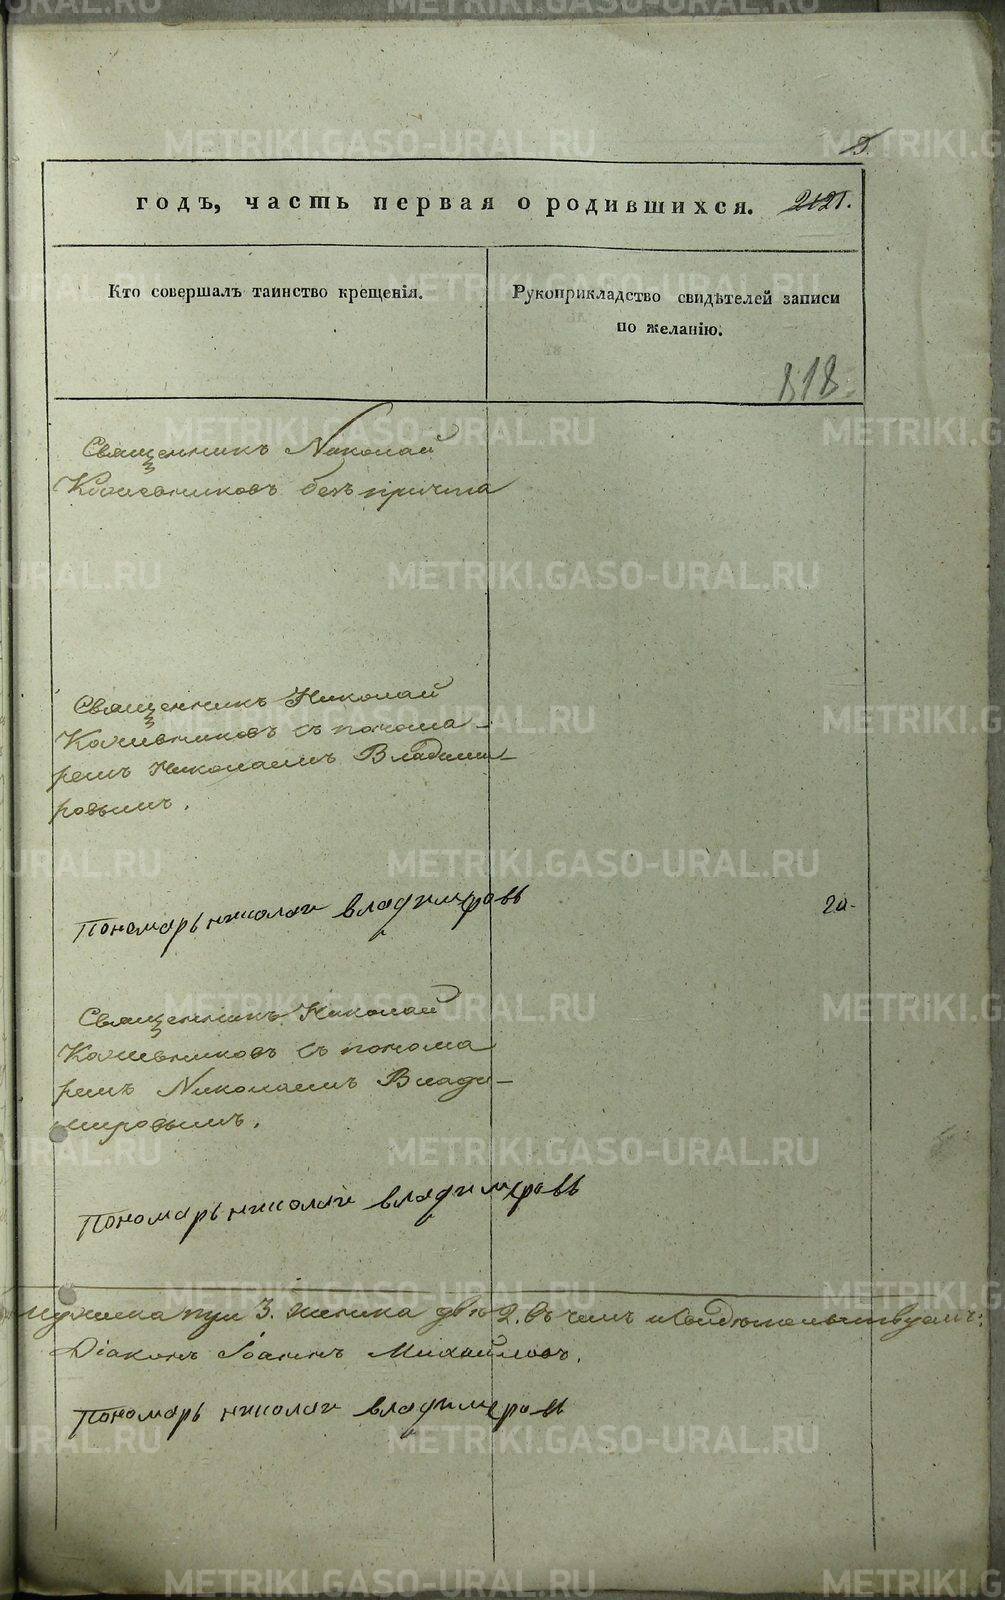 5.
годъ, часть первая о родившихся. 2121.
Кто совершалъ таинство крещенія.
Рукоприкладство свидѣтелей записи
по желанію.
818.
Священникъ Николай
Кожевниковъ безъ причта
Священникъ Николай
Кожевниковъ съ понома-
ремъ Николаемъ Владими-
ровымъ.
Пономарь николаи владимеровъ
20.
Священникъ Николай
Кожевниковъ съ понома
ремъ Николаемъ Влади-
мировымъ.
Пономарь николаи владимеровъ
мужеска три 3. женска двѣ 2. Въ чемъ и свидѣтельствуемъ:
Діаконъ Іоаннъ Михайловъ.
Пономарь николаи владимеровъ
METRIKI.GASO-URAL.RU